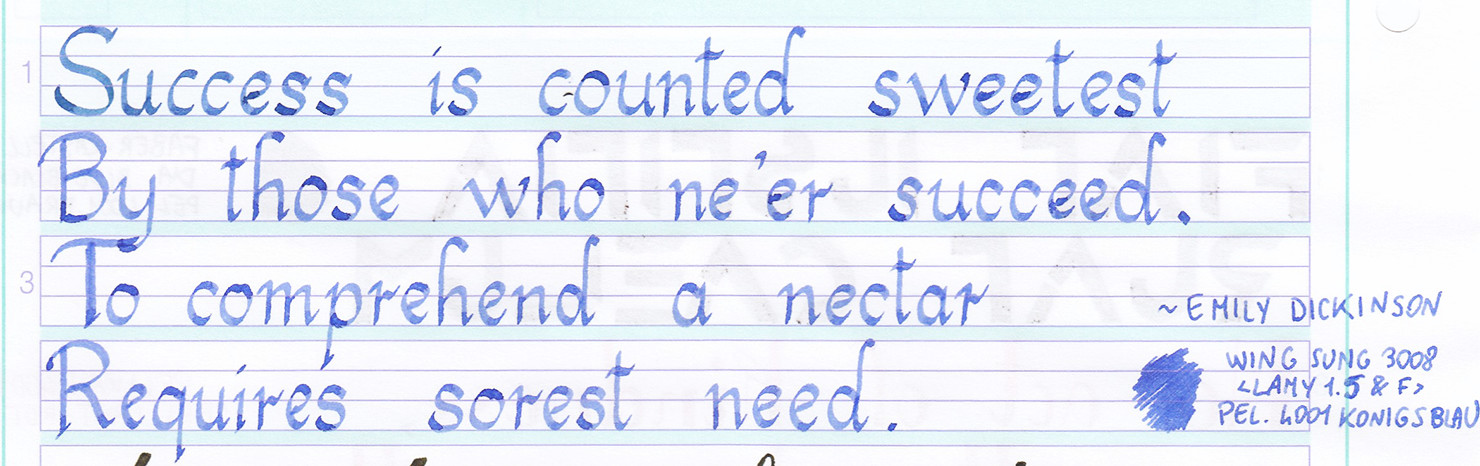 1 Success is counted sweetest
By those who ne'er succeed.
3 To comprehend a nectar
~ EMILY DICKINSON
Requires sorest need.
WING SUNG 3008
<LAMY 1.5 & F>
PEL. 4001 KONIGSBLAU